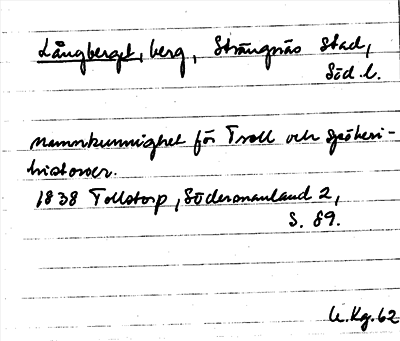 Långberget, berg, Strängnäs stad,
Söd. l.
Namnkunnighet för Troll och spökeri-
historier.
1838 Tollstorp, Södermanland 2,
S. 89.
U. Kg. 62